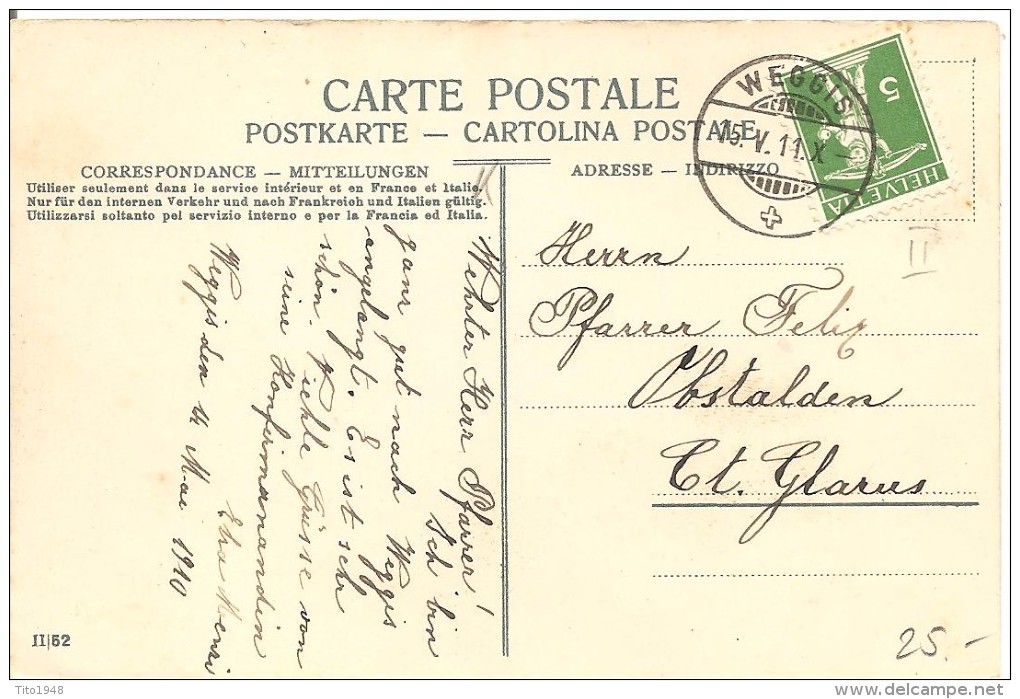 CARTE POSTALE
POSTKARTE — CARTOLINA POSTALE
CORRESPONDANCE — MITTEILUNGEN
Utiliser seulement dans le service intérieur et en France et Italie.
Nur für den internen Verkehr und nach Frankreich und Italien gültig.
Utilizzarsi soltanto pel servizio interno e per la Francia ed Italia.
ADRESSE — INDIRIZZO
WEGGIS
15. V. 11. X —
5
HELVETIA
II
Herrn
Pfarrer Felix
Obstalden
Ct. Glarus
Wehrter Herr Pfarrer!
Ich bin
ganz gut nach Weggis
angelangt. Es ist sehr
schön. Vielle Grüsse von
seine Konfirmanandin
Weggis den 14 Mai 1910
II|52
25.-
Tito1948
www.delcampe.net